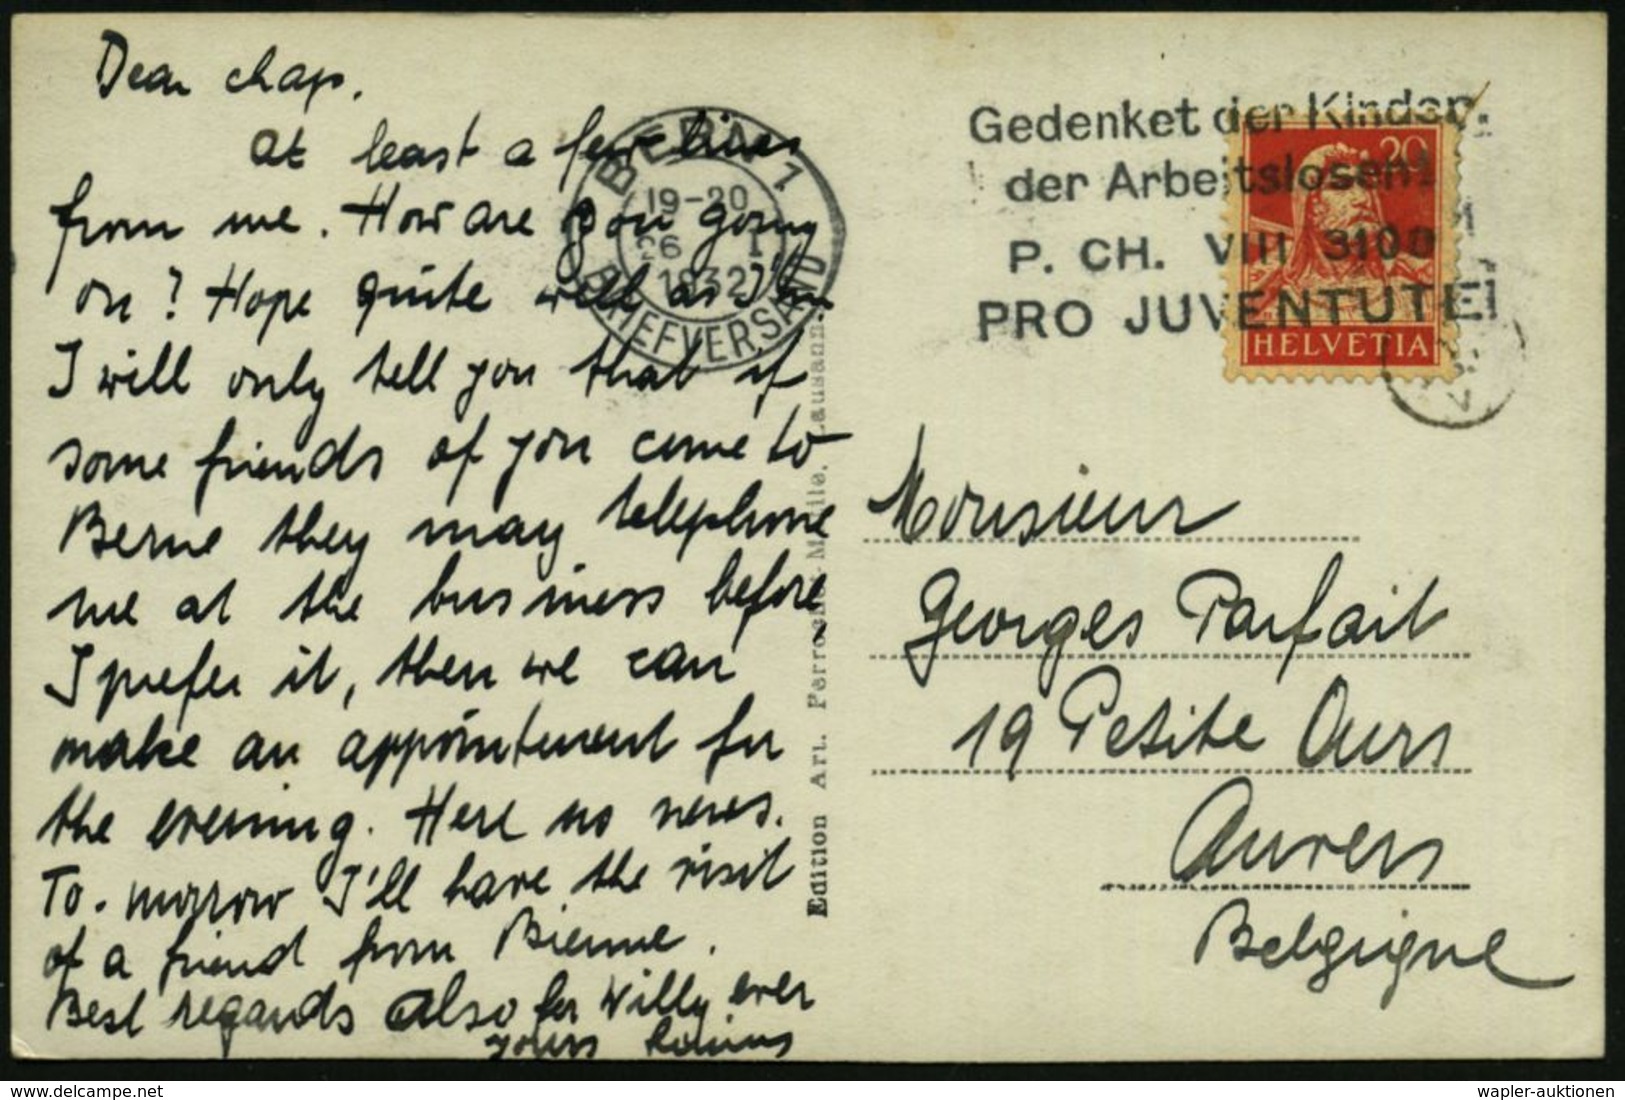 Dear chap,
at least a few lines
from me. How are you going
on? Hope quite well as I'm
I will only tell you that if
some friends of you come to
Berne they may telephone
me at the business before
I prefer it, then we can
make an appointment for
the evening. Here no news.
To-morrow I'll have the visit
of a friend from Bienne.
Best regards also for Willy ever
yours
BERN 1
19-20
26 I
1932
BRIEFVERSAND
Edition Art. Perrochet Lausanne
Gedenket der Kinder
der Arbeitslosen!
P. CH. VIII 3100
PRO JUVENTUTE
20
HELVETIA
Monsieur
Georges Parfait
19 Petite Ours
Anvers
Belgique
© www.delcampe.net
wapler-auktionen